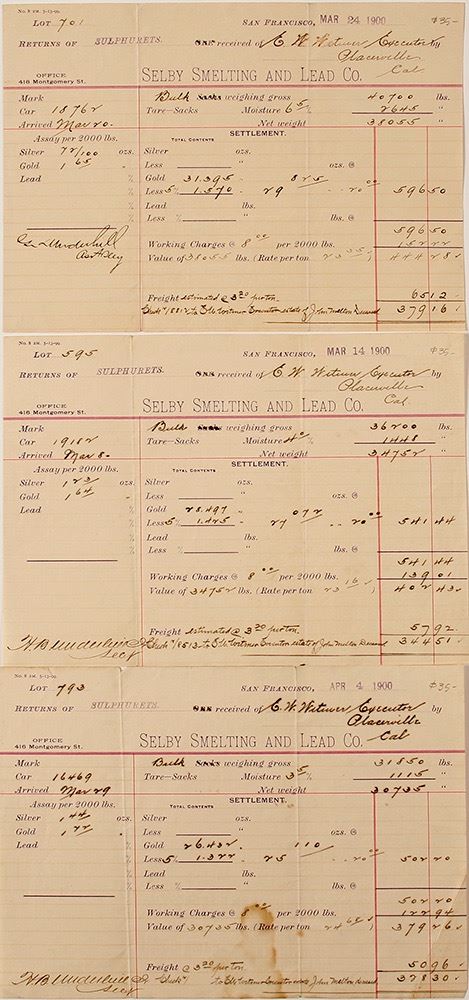 No. 8 2M. 3-13-99
LOT 701
SAN FRANCISCO, MAR 24 1900 $35-
RETURNS OF SULPHURETS. ORE received of E. W. Witmer Executor by
Placerville
Cal
OFFICE
416 Montgomery St.
SELBY SMELTING AND LEAD CO.
Mark Bulk Sacks weighing gross 40700 lbs.
Car 18762 Tare—Sacks Moisture 6.5% 2645 "
Arrived Mar 20. Net weight 38055 "
Assay per 2000 lbs. SETTLEMENT.
TOTAL CONTENTS
Silver 72/100 ozs. Silver ozs.
Gold 1 65 " Less " ozs. @
Lead % Gold 31.395 " 825
% Less 5% 1.570 29 .. 20 00 59650
% Lead lbs.
% Less % " lbs. @
59650
Asst Secy
Working Charges @ 8 00 per 2000 lbs. 15222
Value of 38055 lbs. (Rate per ton 23 35) 44428
Freight estimated @ 3 20 per ton. 6512
estate of John Melton Deceased 37916
No. 8 2M. 3-13-99
LOT 595
SAN FRANCISCO, MAR 14 1900 $35-
RETURNS OF SULPHURETS. ORE received of E. W. Witmer Executor
Placerville
Cal.
OFFICE
416 Montgomery St.
SELBY SMELTING AND LEAD CO.
Mark Bulk Sacks weighing gross 36200 lbs.
Car 19182 Tare—Sacks Moisture 4% 1448 "
Arrived Mar 8- Net weight 34752 "
Assay per 2000 lbs. SETTLEMENT.
TOTAL CONTENTS
Silver 1 23/ ozs. Silver ozs.
Gold 1 64 " Less " ozs. @
Lead % Gold 28.497 " 072
% Less 5% 1.425 27 .. 20 00 54144
% Lead lbs.
% Less % " lbs. @
54144
Working Charges @ 8 00 per 2000 lbs. 13901
Value of 34752 lbs. (Rate per ton 23 16) 40243
Freight estimated @ 3 20 per ton. 5792
Secy estate of John Melton Deceased 34451
No. 8 2M. 3-13-99
LOT 793
SAN FRANCISCO, APR 4 1900 $35-
RETURNS OF SULPHURETS. ORE received of E. W. Witmer Executor
Placerville
Cal
OFFICE
416 Montgomery St.
SELBY SMELTING AND LEAD CO.
Mark Bulk Sacks weighing gross 31850 lbs.
Car 16469 Tare—Sacks Moisture 3.5% 1115 "
Arrived Mar 29 Net weight 30735 "
Assay per 2000 lbs. SETTLEMENT.
TOTAL CONTENTS
Silver 1 44 ozs. Silver ozs.
Gold 1 72 " Less " ozs. @
Lead % Gold 26.432 " 110
% Less 5% 1.322 25 .. 20 00 50220
% Lead lbs.
% Less % " lbs. @
50220
Working Charges @ 8 00 per 2000 lbs. 12294
Value of 30735 lbs. (Rate per ton 24 68) 37926
Freight @ 3 20 per ton. 5096
Secy John Melton deceased 32830